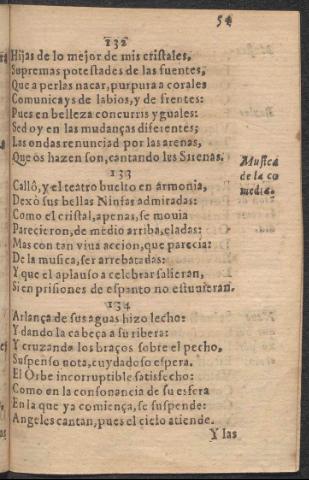 54
132
Hijas de lo mejor de mis cristales,
Supremas potestades de las fuentes,
Que a perlas nacar, purpura a corales
Comunicays de labios, y de frentes:
Pues en belleza concurris yguales:
Sed oy en las mudanças diferentes;
Las ondas renunciad por las arenas,
Que os hazen son, cantando las Sirenas.
Musica
de la co
media.
133
Callô, y el teatro buelto en armonia,
Dexò sus bellas Ninfas admiradas:
Como el cristal, apenas, se mouia
Parecieron, de medio arriba, eladas:
Mas con tan viua accion, que parecia:
De la musica, ser arrebatadas:
Y que el aplauso a celebrar salieran,
Si en prisiones de espanto no estuuieran.
134
Arlança de sus aguas hizo lecho:
Y dando la cabeça a su ribera:
Y cruzando los braços sobre el pecho,
Suspenso nota, cuydadoso espera.
El Orbe incorruptible satisfecho:
Como en la consonancia de su esfera
En la que ya comiença, se suspende:
Angeles cantan, pues el cielo atiende.
Y las